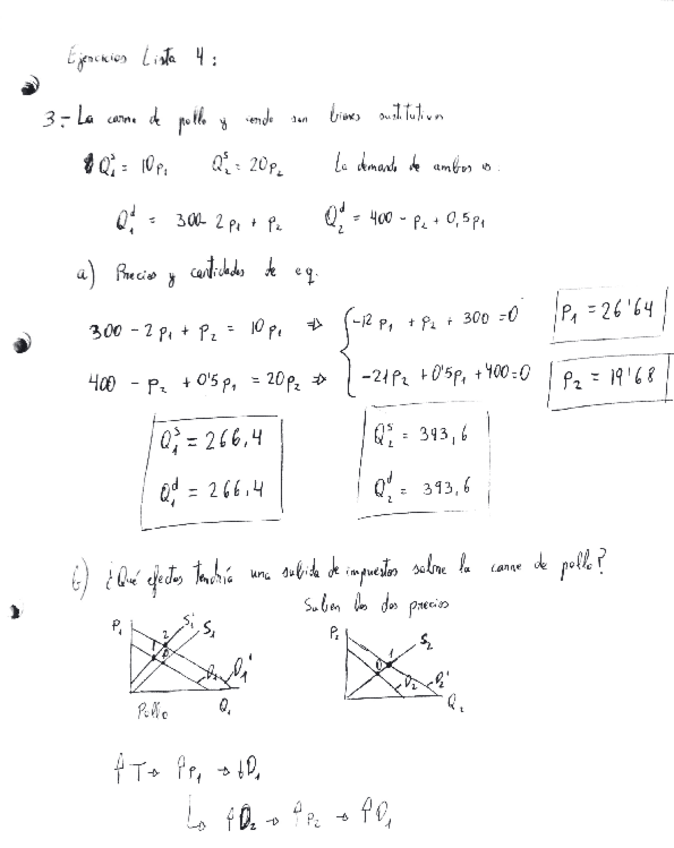 Ejercicios Lista 4:
3.- La carne de pollo y cerdo son bienes sustitutivos
Q₁ˢ = 10p₁ Q₂ˢ = 20p₂ La demanda de ambos es:
Q₁ᵈ = 300 - 2p₁ + p₂ Q₂ᵈ = 400 - p₂ + 0,5p₁
a) Precios y cantidades de eq.
300 - 2p₁ + p₂ = 10p₁ ⇒ { -12p₁ + p₂ + 300 = 0 P₁ = 26'64
400 - p₂ + 0'5p₁ = 20p₂ ⇒ { -21p₂ + 0'5p₁ + 400 = 0 P₂ = 19'68
Q₁ˢ = 266,4 Q₂ˢ = 393,6
Q₁ᵈ = 266,4 Q₂ᵈ = 393,6
b) ¿Qué efectos tendría una subida de impuestos sobre la carne de pollo?
Suben los dos precios
P₁ 2 S₁' S₁ P₂ S₂
1 0 D₁ D₁' 0 1 D₂ D₂'
Pollo Q₁ Q₂
↑T → ↑P₁ → ↓D₁
↳ ↑D₂ → ↑P₂ → ↑D₁